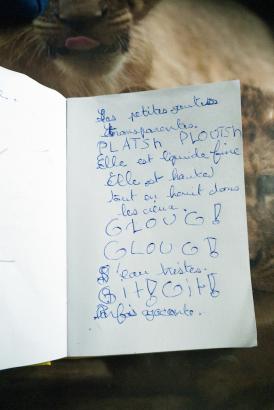 Les petites gouttes
transparentes.
PLATSH PLOUTSH
Elle est liquide fine
Elle est haute
tout en haut dans
les cieux.
GLOUG!
GLOUG!
L'eau tristes.
Git! Git!
Parfois agaçante.